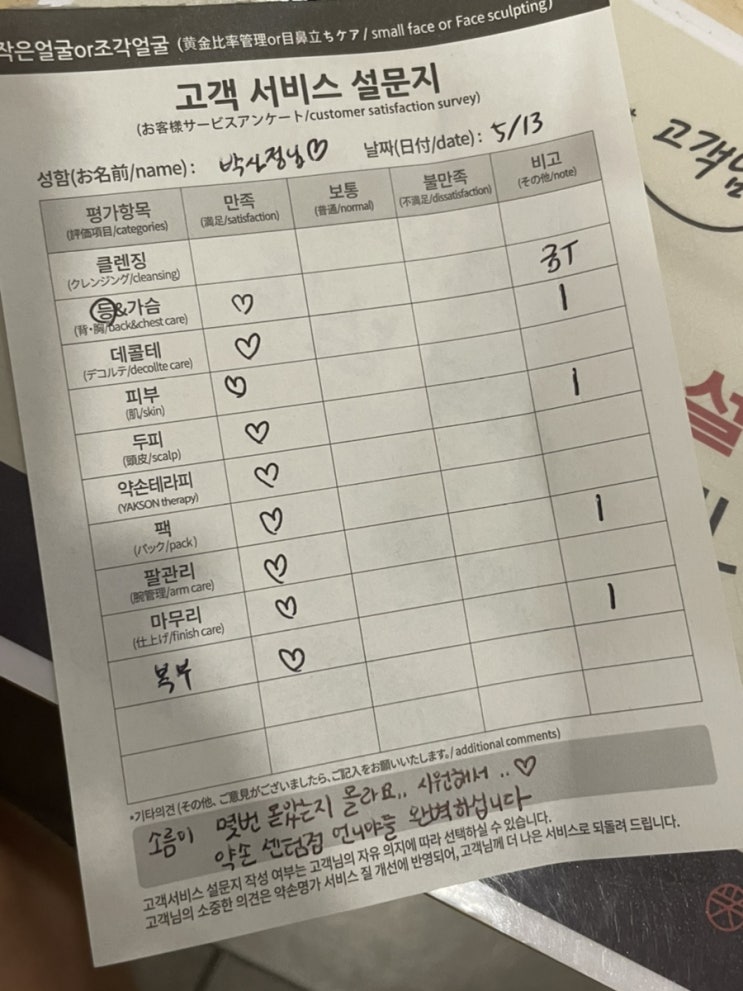 작은얼굴or조각얼굴 (黄金比率管理or目鼻立ちケア/ small face or Face sculpting)
고객 서비스 설문지
(お客様サービスアンケート/customer satisfaction survey)
성함(お名前/name) : 박신정님♡ 날짜(日付/date) : 5/13
평가항목 만족 보통 불만족 비고
(評価項目/categories) (満足/satisfaction) (普通/normal) (不満足/dissatisfaction) (その他/note)
클렌징
(クレンジング/cleansing)
등&가슴 ♡
(背・胸/back&chest care)
데콜테 ♡
(デコルテ/decollte care)
피부 ♡
(肌/skin)
두피 ♡
(頭皮/scalp)
약손테라피 ♡
(YAKSON therapy)
팩 ♡
(パック/pack)
팔관리 ♡
(腕管理/arm care)
마무리 ♡
(仕上げ/finish care)
복부 ♡
*기타의견 (その他、ご意見がございましたら、ご記入をお願いいたします。/ additional comments)
소름이 몇번 돋았는지 몰라요.. 시원해서 .. ♡
약손 센텀점 언니야들 완벽하십니다
고객서비스 설문지 작성 여부는 고객님의 자유 의지에 따라 선택하실 수 있습니다.
고객님의 소중한 의견은 약손명가 서비스 질 개선에 반영되어, 고객님께 더 나은 서비스로 되돌려 드립니다.
고객님
설